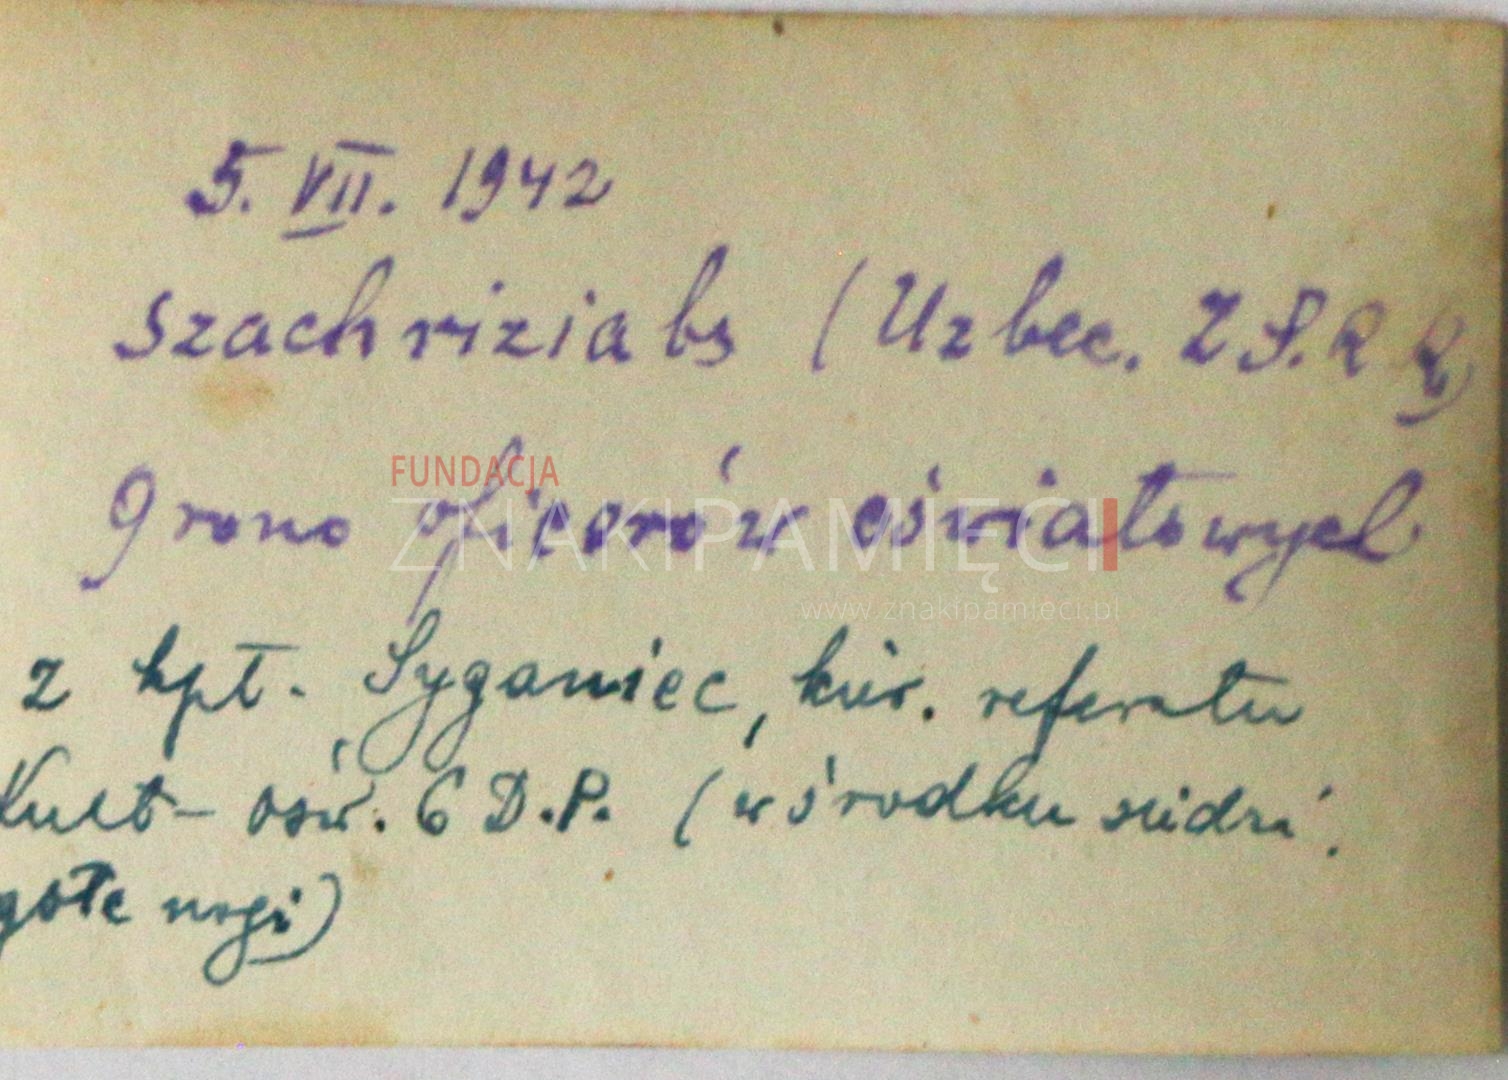 5. VII. 1942
Szachriziabs (Uzbec. Z S. R R)
Grono oficerów oświatowych
z kpt. Syganiec, kier. referatu
Kult - ośw. 6 D.P. (w środku siedzi,
gołe nogi)
FUNDACJA
ZNAKI PAMIĘCI
www.znakipamieci.pl